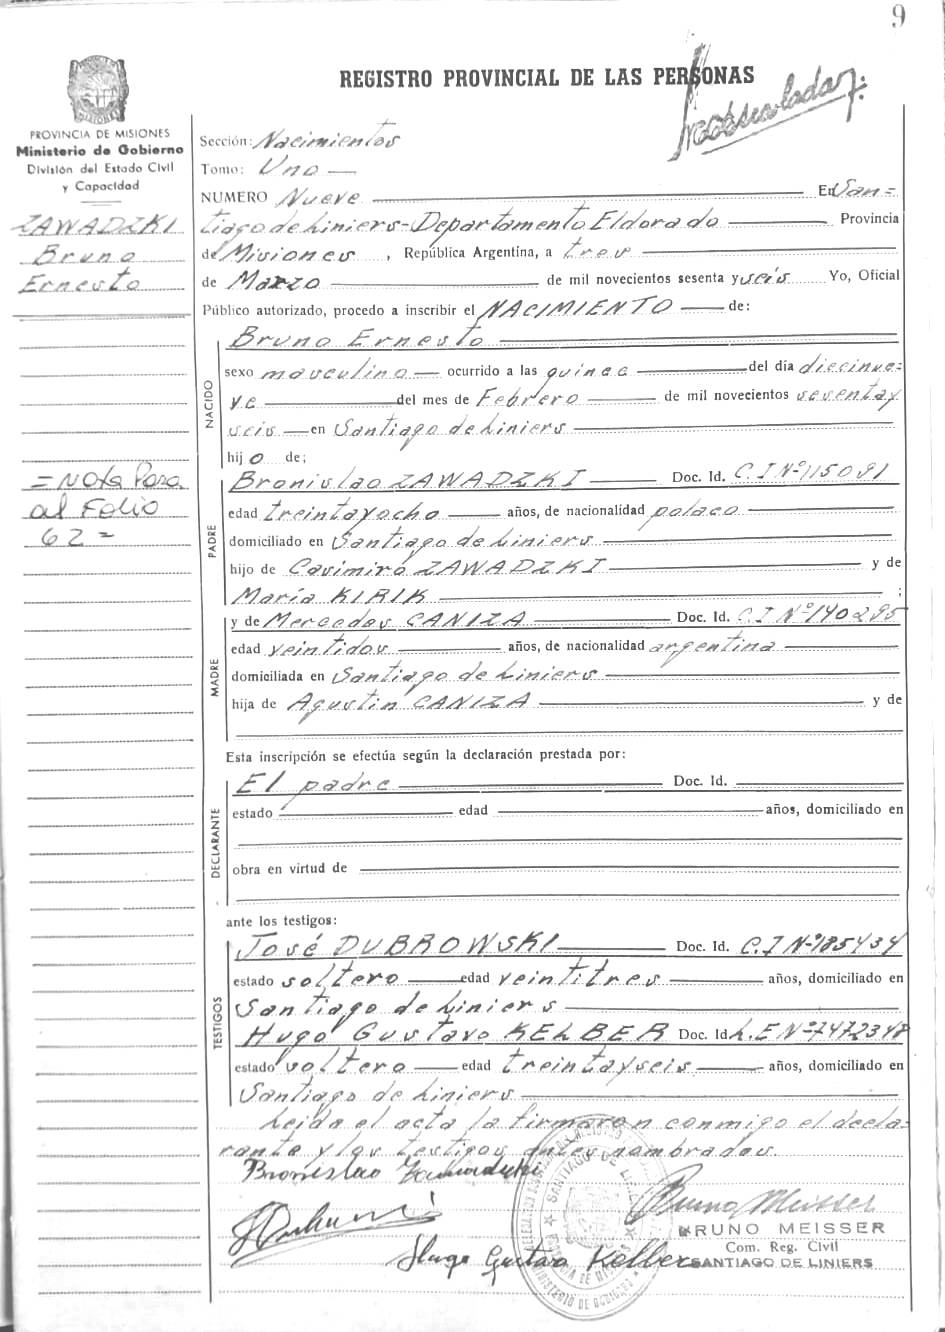 9
REGISTRO PROVINCIAL DE LAS PERSONAS
PROVINCIA DE MISIONES
Ministerio de Gobierno
División del Estado Civil
y Capacidad
ZAWADZKI
Bruno
Ernesto
= Nota Pasa
al Folio
62 =
Sección: Nacimientos
Tomo: Uno —
NUMERO Nueve — En San=
tiago de Liniers - Departamento Eldorado — Provincia
de Misiones , República Argentina, a tres —
de Marzo — de mil novecientos sesenta y seis Yo, Oficial
Público autorizado, procedo a inscribir el NACIMIENTO — de:
NACIDO
Bruno Ernesto —
sexo masculino — ocurrido a las quince — del día diecinue=
ve — del mes de Febrero — de mil novecientos sesentay
seis — en Santiago de Liniers —
hijo de;
PADRE
Bronislao ZAWADZKI — Doc. Id. C.I Nº 115081
edad treintayocho — años, de nacionalidad polaco —
domiciliado en Santiago de Liniers —
hijo de Casimiro ZAWADZKI — y de
María KIRIK — ;
MADRE
y de Mercedes CANIZA — Doc. Id. C.I Nº 140295
edad veintidos — años, de nacionalidad argentina —
domiciliada en Santiago de Liniers —
hija de Agustín CANIZA — y de
Esta inscripción se efectúa según la declaración prestada por:
DECLARANTE
El padre — Doc. Id. —
estado — edad — años, domiciliado en
obra en virtud de —
ante los testigos:
TESTIGOS
José DUBROWSKI — Doc. Id. C.I Nº 185434
estado soltero — edad veintitres — años, domiciliado en
Santiago de Liniers —
Hugo Gustavo KELBER Doc. Id L.E Nº 7472348
estado soltero — edad treintayseis — años, domiciliado en
Santiago de Liniers —
Leida el acta la firmaron conmigo el decla-
rante y los testigos antes nombrados.
Bronislao Zawadzki
Bruno Meisser
BRUNO MEISSER
Com. Reg. Civil
Hugo Gustavo Kelber
SANTIAGO DE LINIERS